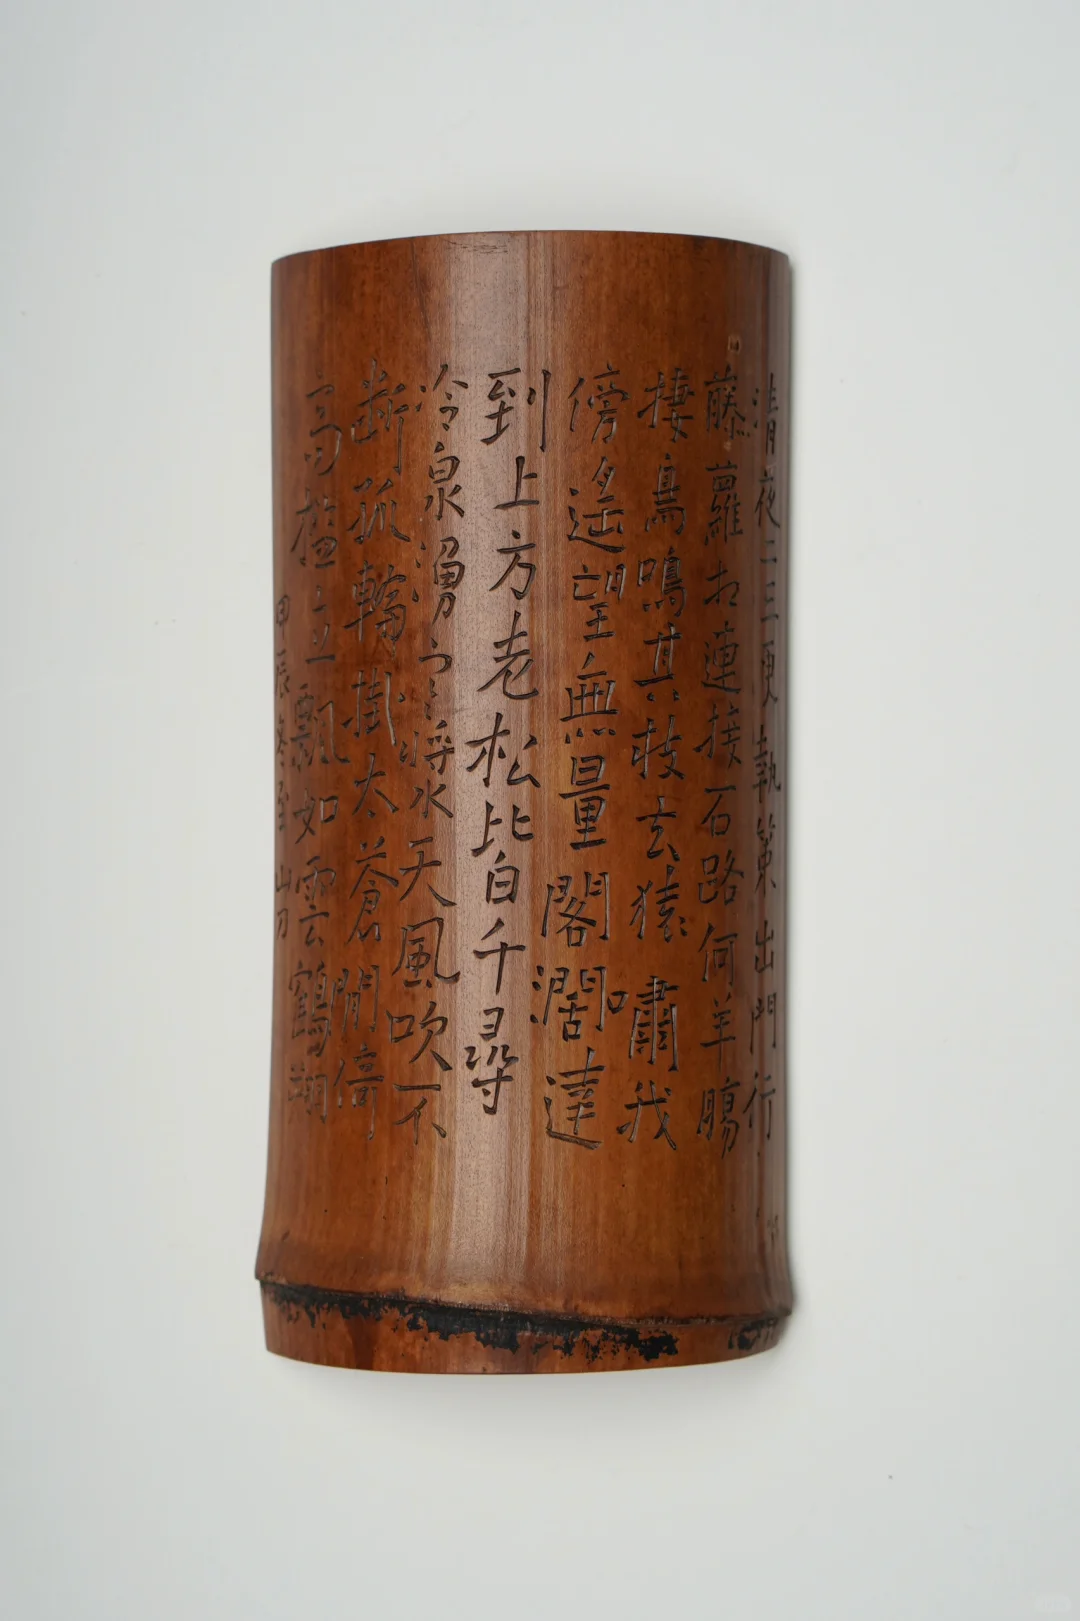 清夜二三更執策出門行
藤蘿相連接石路何羊腸
棲鳥鳴其枝玄猿嘯我
傍遙望無量閣濶達
到上方老松比白千尋
冷泉湧寒將水天風吹不
斷孤輪掛太蒼閒倚
高檻上立飄如雲鶴翔
甲辰冬至 山刀